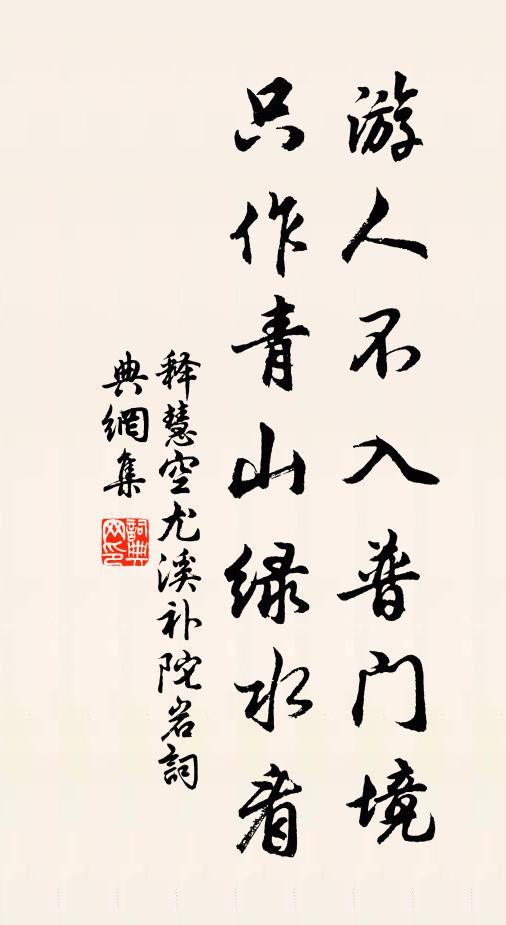 游人不入普门境
只作青山绿水看
释慧空尤溪补陀岩詞
典網集
詞典
网印